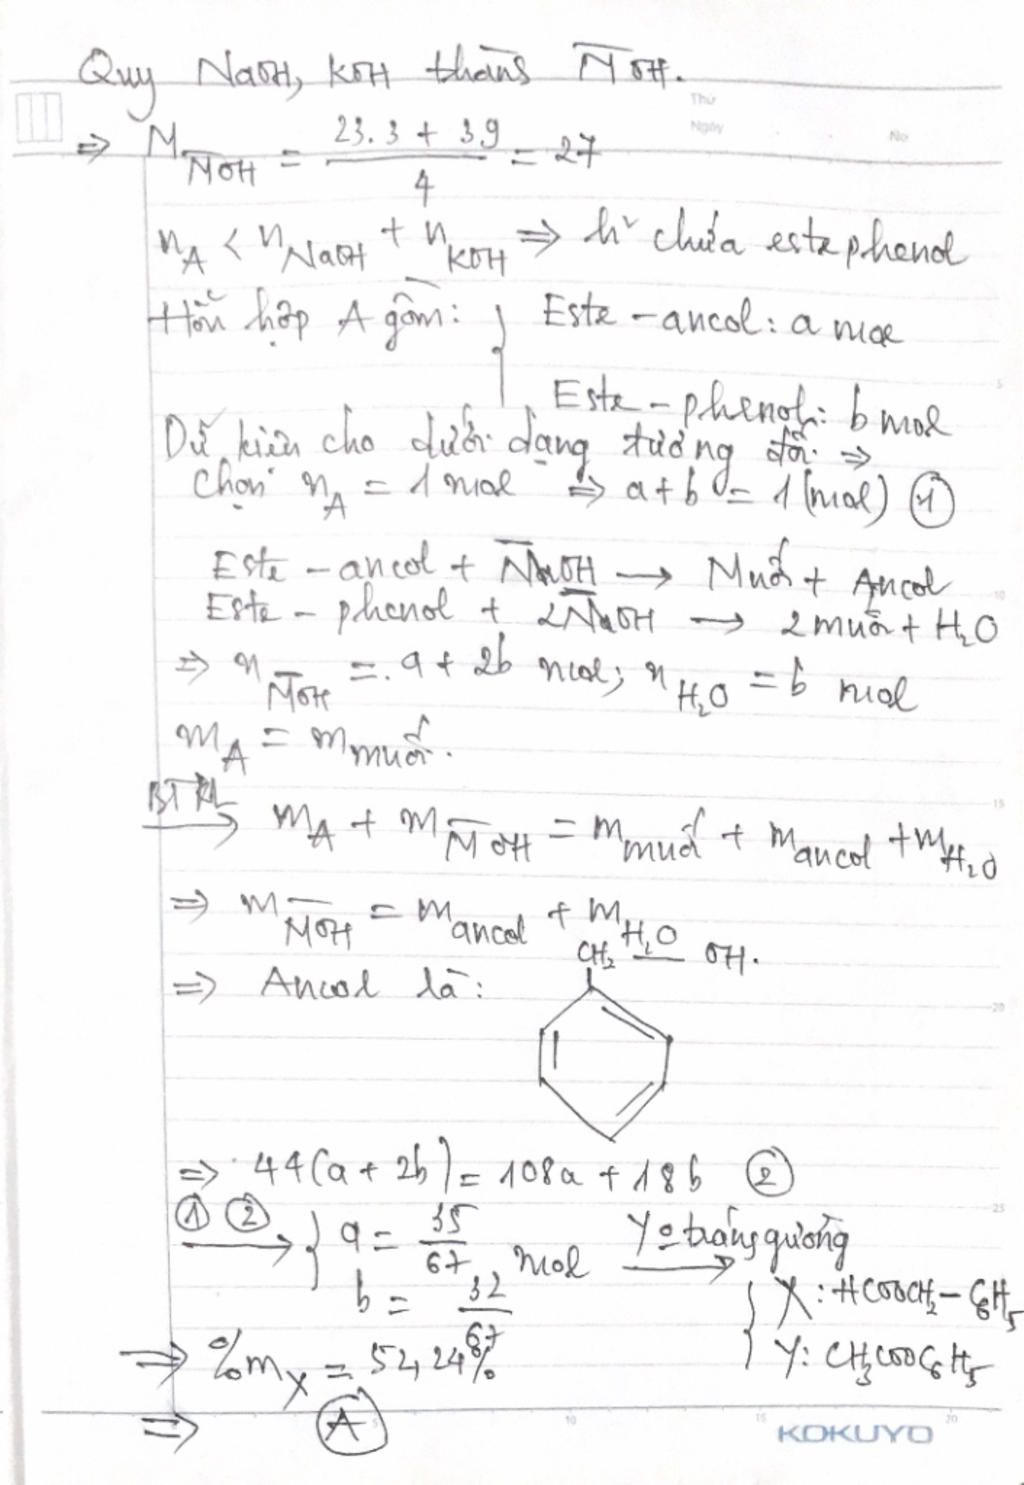 Quy NaOH, KOH thành M̅OH.
Thứ
Ngày
No
⇒ M_M̅OH = (23.3 + 39)/4 = 27
n_A < n_NaOH + n_KOH ⇒ h² chứa este phenol
Hỗn hợp A gồm: { Este - ancol: a mol
Este - phenol: b mol
Dữ kiện cho dưới dạng tương đối ⇒
Chọn n_A = 1 mol ⇒ a + b = 1 (mol) ①
Este - ancol + M̅OH → Muối + Ancol
Este - phenol + 2M̅OH → 2 muối + H₂O
⇒ n_M̅OH = a + 2b mol; n_H₂O = b mol
m_A = m_muối.
BTKL → m_A + m_M̅OH = m_muối + m_ancol + m_H₂O
⇒ m_M̅OH = m_ancol + m_H₂O
CH₂ — OH.
⇒ Ancol là:
⇒ 44(a + 2b) = 108a + 18b ②
①② → { a = 35/67 mol
b = 32/67
Y o tráng gương → { X: HCOOCH₂-C₆H₅
Y: CH₃COOC₆H₅
⇒ %m_X = 52,24%
⇒ Ⓐ
5
10
15
20
25
5
10
15
20
KOKUYO